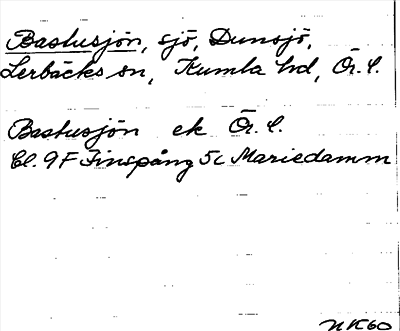 Bastusjön, sjö, Dunsjö,
Lerbäcks sn, Kumla hd, Ör. l.
Bastusjön ek Ör. l.
Bl. 9F Finspång 5c Mariedamm
NK60